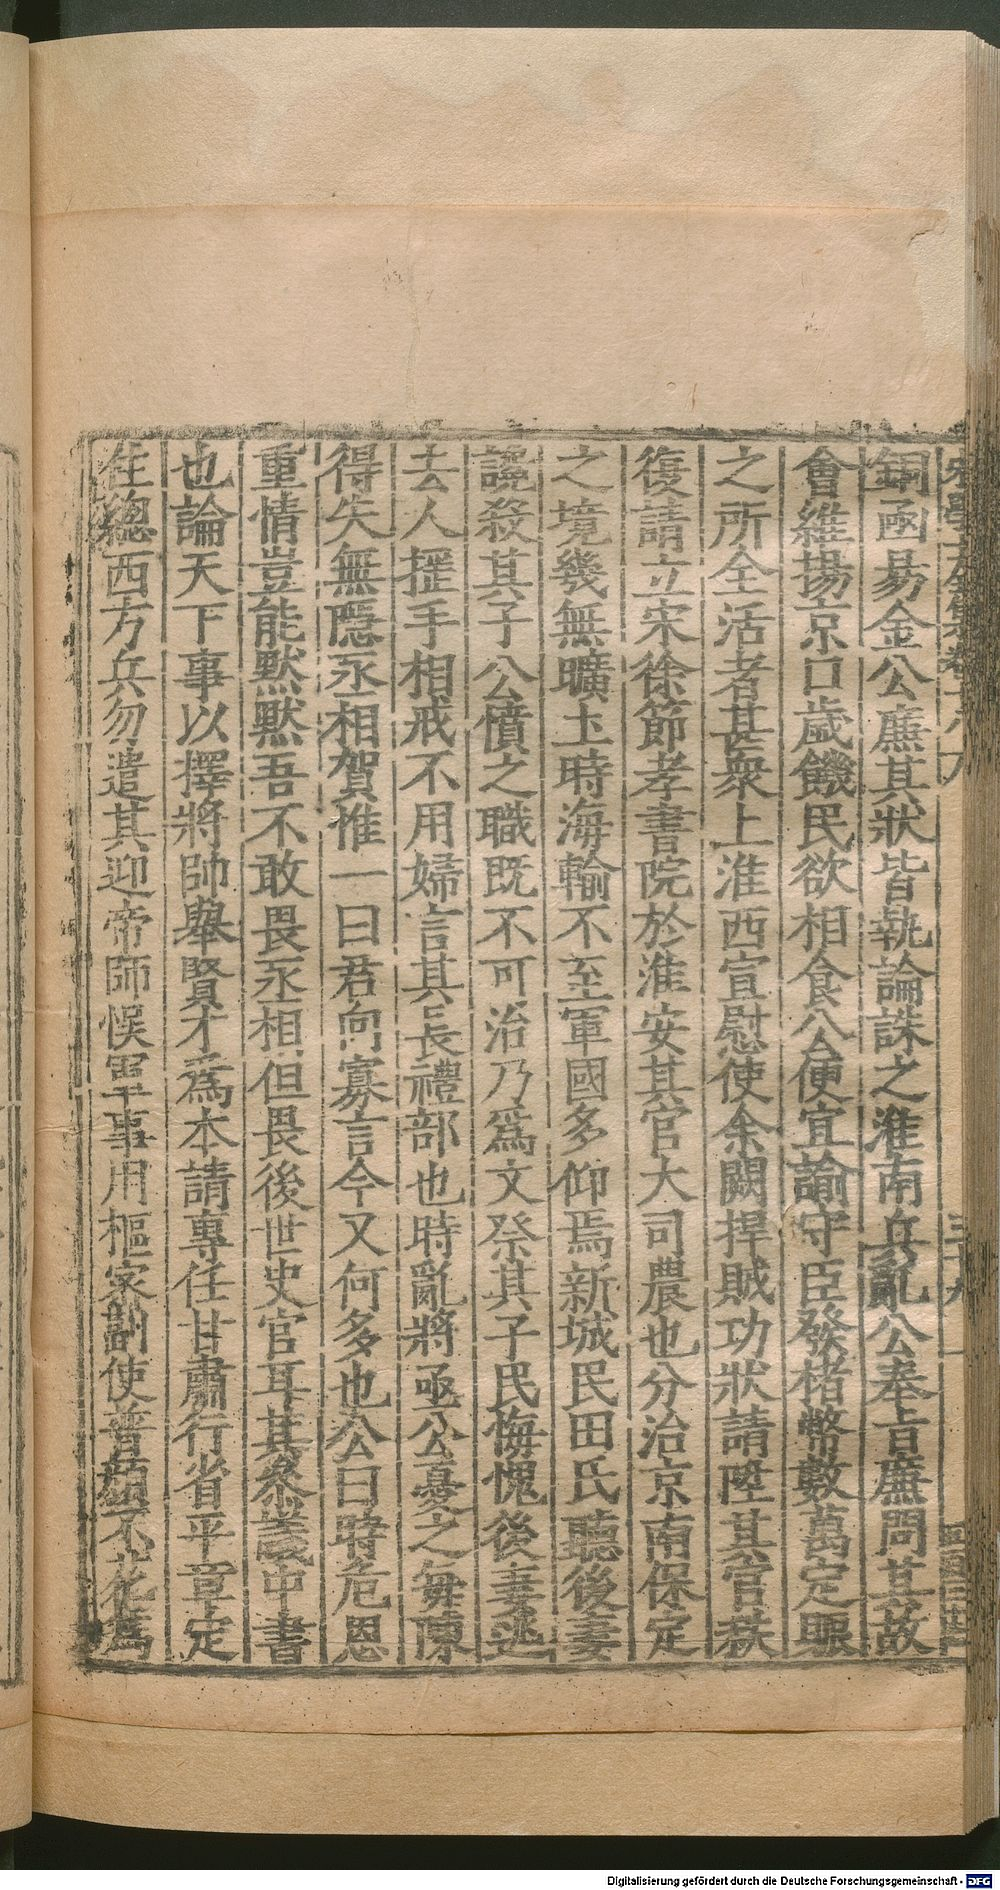 銅函易金公廉其狀皆執論誅之淮南兵亂公奉㫖廉問其故
會維揚京口歲饑民欲相食公便宜諭守臣發楮幣數萬定賑
之所全活者甚衆上淮西宣慰使余闕捍賊功狀請陞其官秩
復請立宋徐節孝書院於淮安其官大司農也分治京南保定
之境幾無曠土時海輸不至軍國多仰焉新城民田氏聽後妻
讒殺其子公憤之職既不可治乃爲文祭其子民悔愧後妻逃
去人擺手相戒不用婦言其長禮部也時亂將亟公憂之每陳
得失無隱丞相賀惟一曰君向寡言今又何多也公曰時危恩
重情豈能默默吾不敢畏丞相但畏後世史官耳其叅議中書
也論天下事以擇將帥舉賢才爲本請專任甘肅行省平章定
住總西方兵勿遣其迎帝師悞軍事用樞密副使普顔不花爲
Digitalisierung gefördert durch die Deutsche Forschungsgemeinschaft - DFG